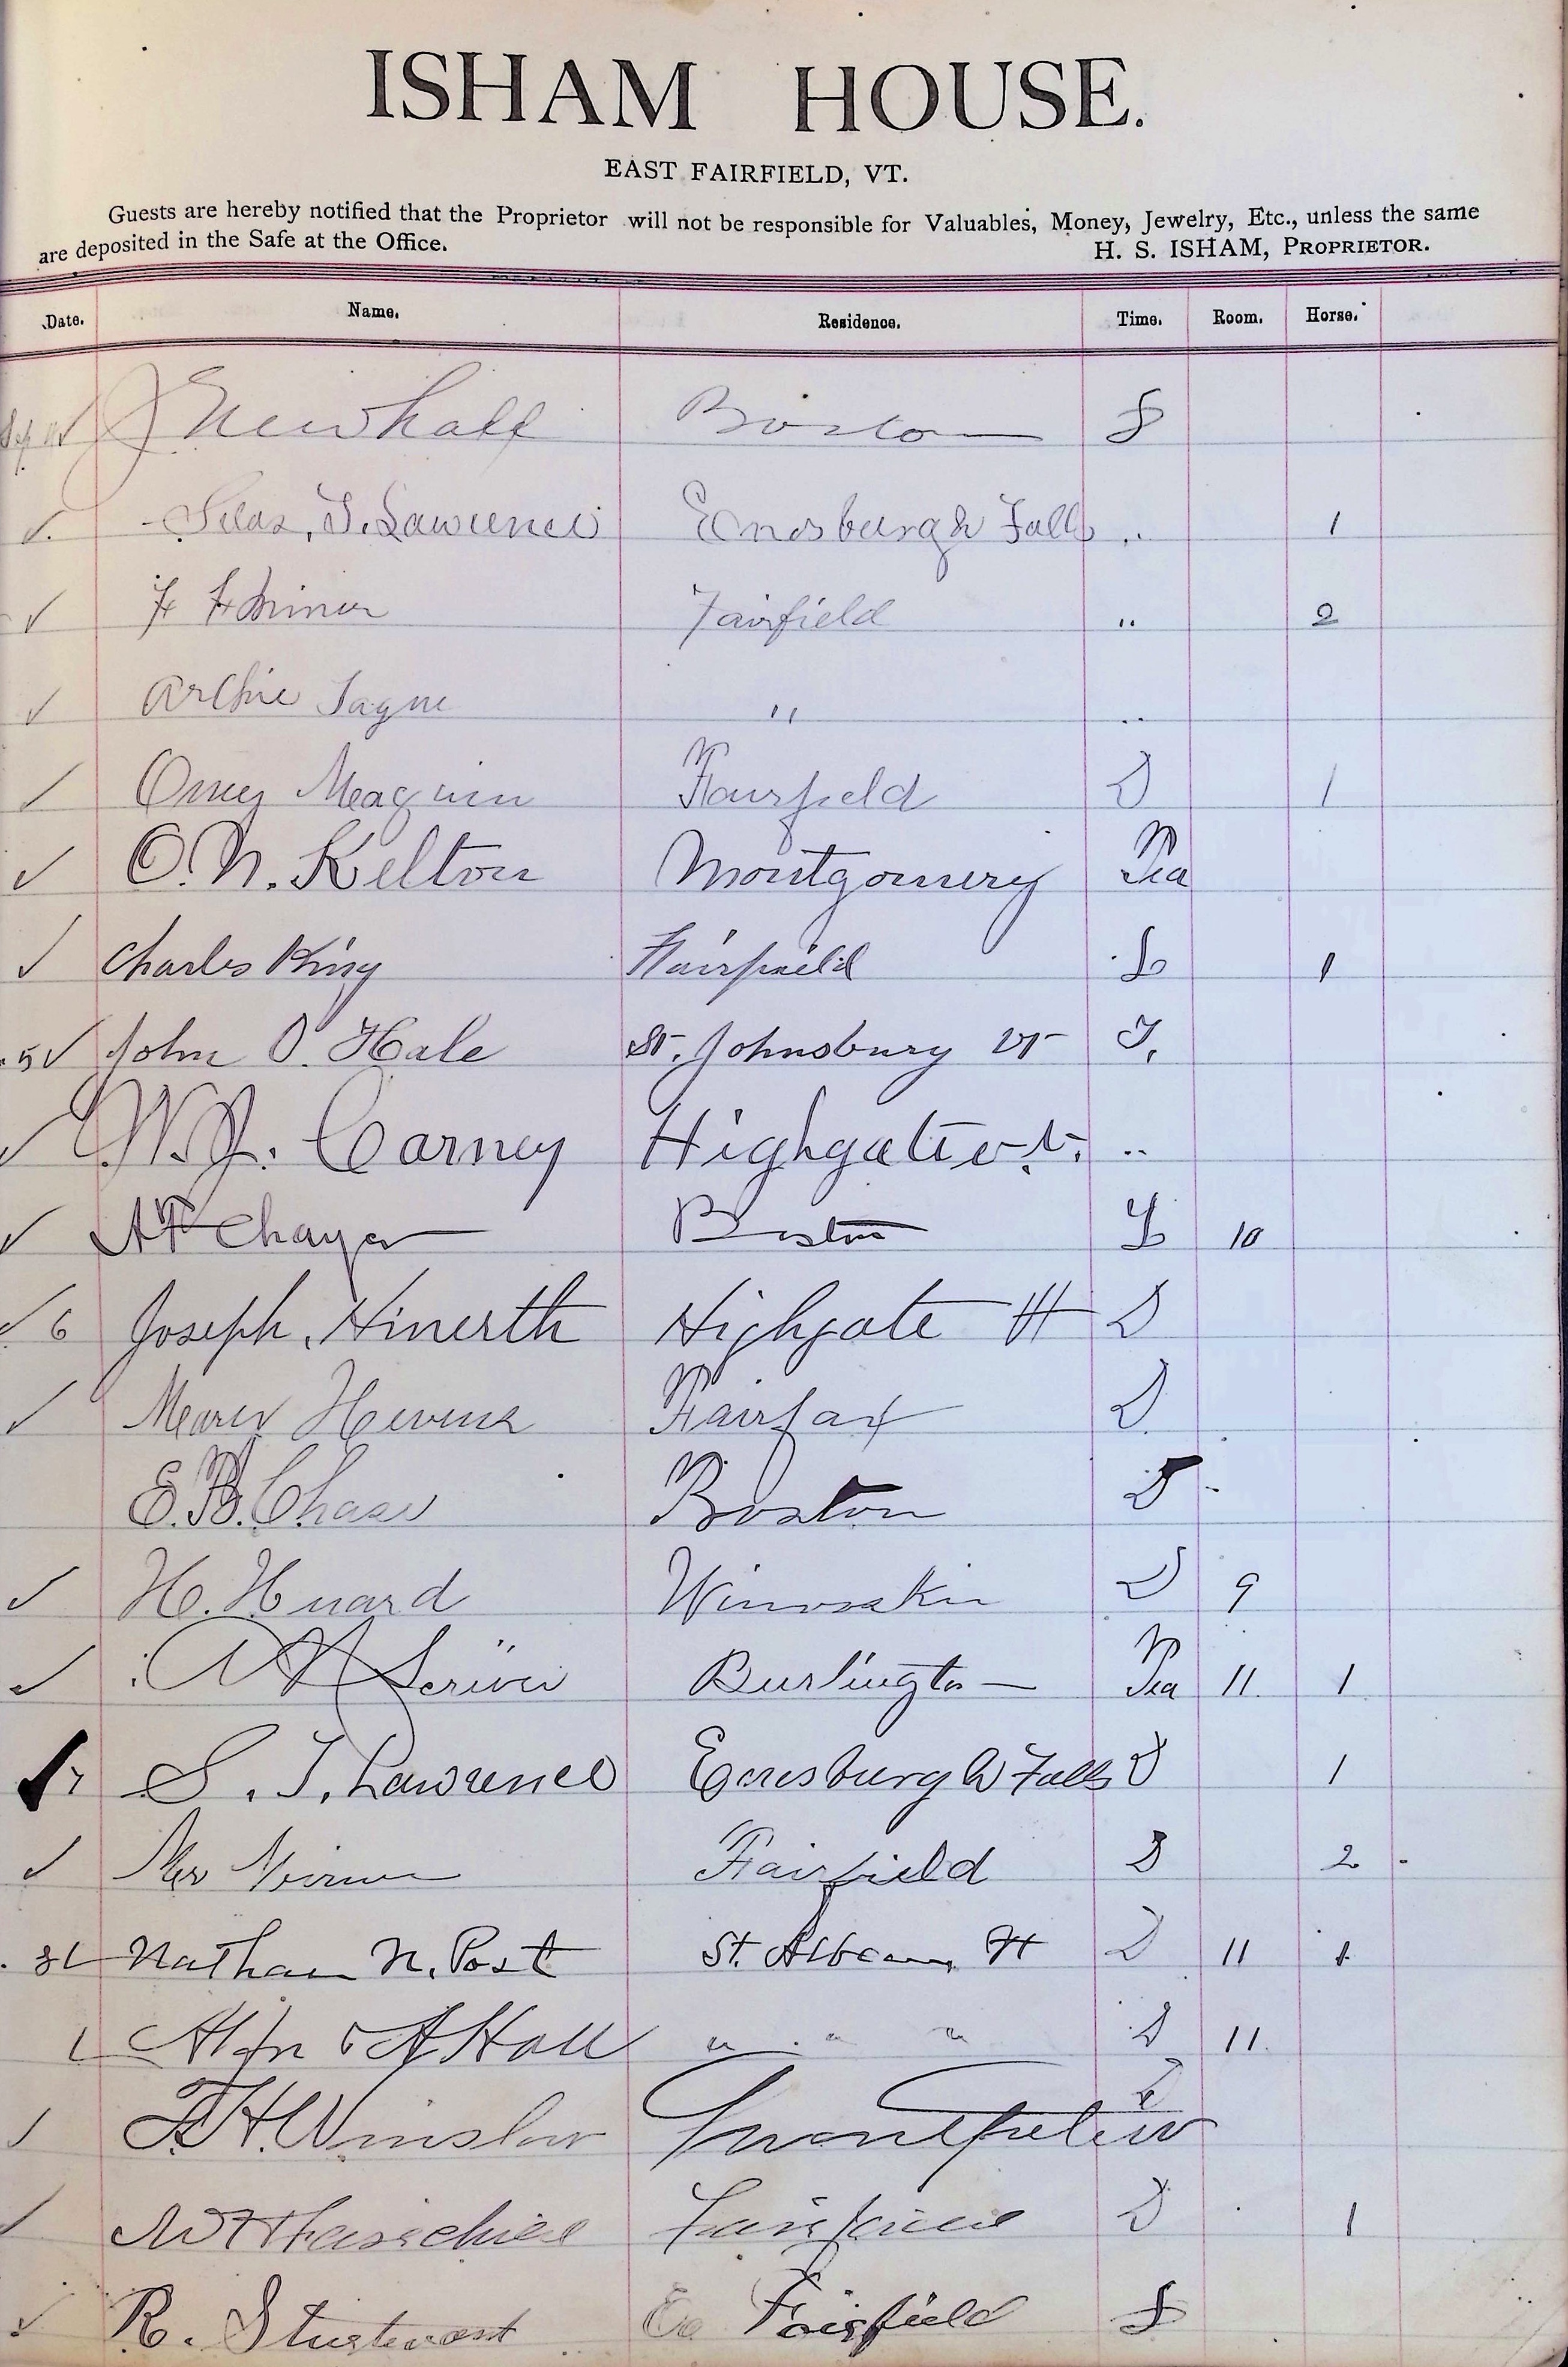 ISHAM HOUSE.
EAST FAIRFIELD, VT.
Guests are hereby notified that the Proprietor will not be responsible for Valuables, Money, Jewelry, Etc., unless the same
are deposited in the Safe at the Office. H. S. ISHAM, PROPRIETOR.
Date. Name. Residence. Time. Room. Horse.
J Newhall Boston
Silas, T. Lawrence Enosburgh Falls .. 1
Fairfield " 2
Archie " ..
Fairfield D 1
O. N. Kelton Montgomery Tea
Charles King Fairfield 1
5 John O. Hale St. Johnsbury Vt T.
W. J. Carney Highgate Vt. ..
Boston 10
6 Joseph Highgate Vt D
Fairfax D
E. B. Chase Boston D
H. Huard Winooski D 9
Scriver Burlington Tea 11. 1
7 S. T. Lawrence Enosburgh Falls D 1
Fairfield 2
8 Nathan N. Post St. Albans, Vt D 11 1
A Hall " " " 11.
F. H. Winslow
Fairfield D 1
R. Sturtevant Ea Fairfield